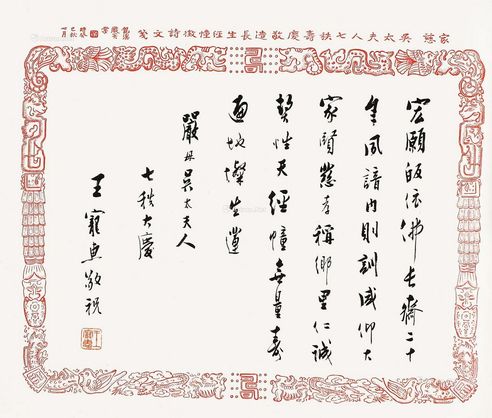 家慈吳太夫人七秩壽慶敬造長生經幢徵詩文箋
宏願皈依佛長齋二十
年風諳內則訓咸仰大
家賢慈孝稱鄉里仁誠
契性天經幢無量壽
遍地燦生蓮
嚴母吳太夫人
七秩大慶
王寵惠敬祝